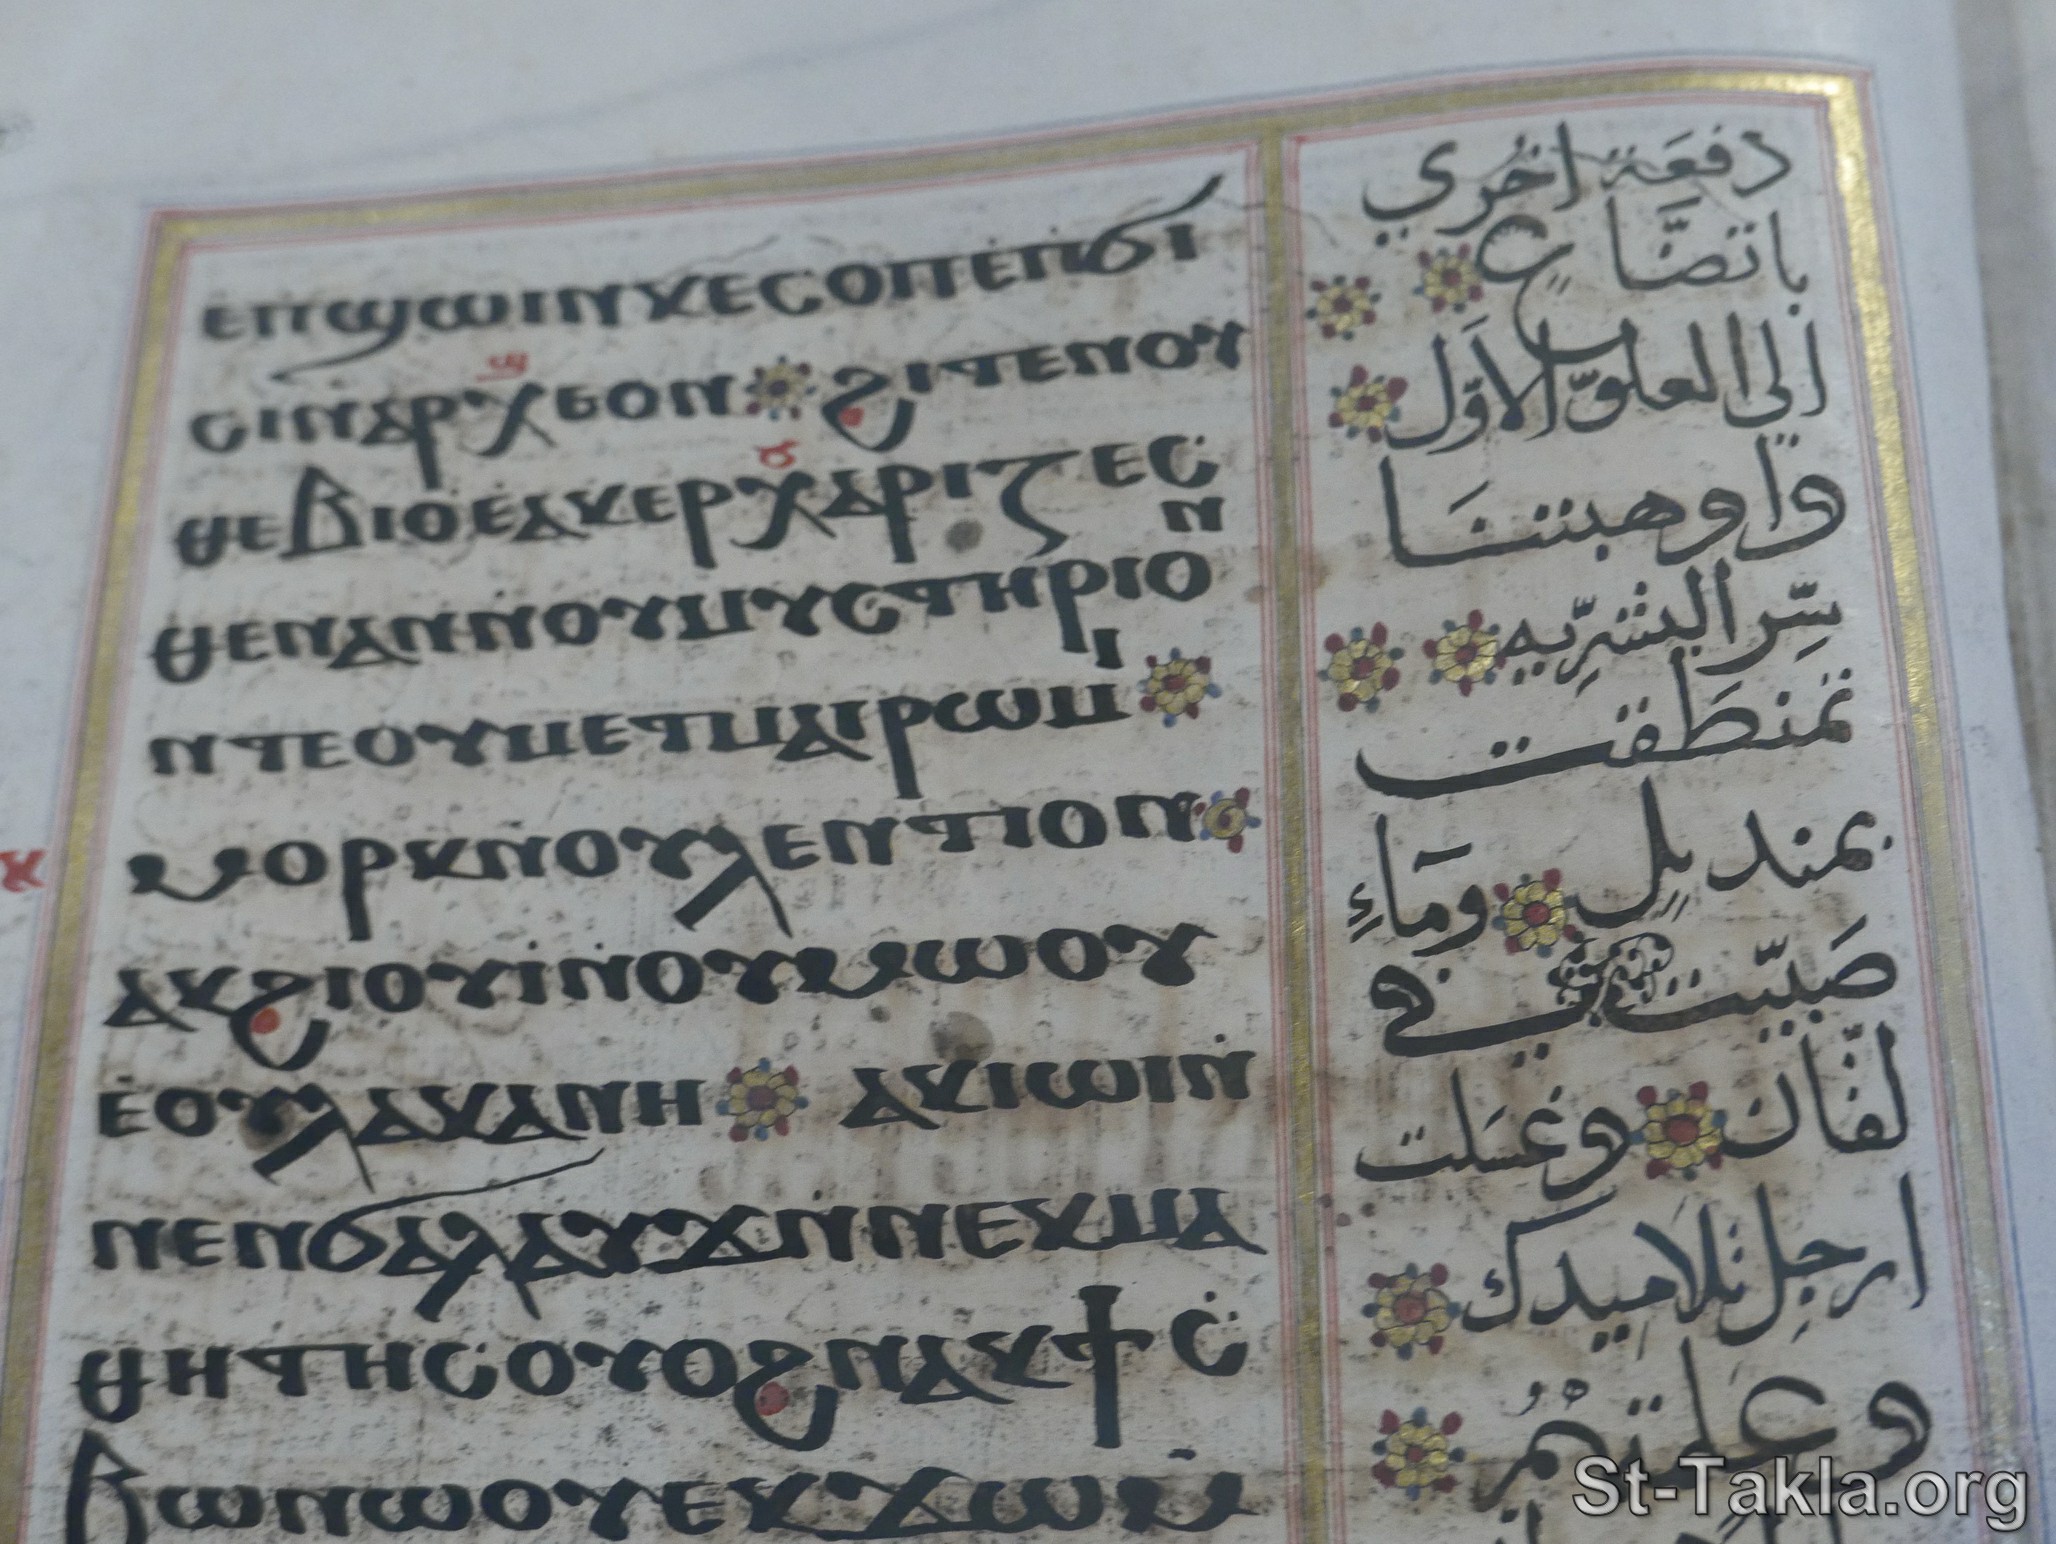 ⲉⲡϣⲱⲓⲛⲕⲉⲥⲟⲡⲉⲡⲉⲛϭⲓ
ⲥⲓⲛⲁⲣⲭⲉⲟⲛ ϩⲓⲧⲉⲛⲟⲩ
ⲑⲉⲃⲓⲟⲉⲁⲕⲉⲣⲭⲁⲣⲓⲍⲉⲥ
ⲑⲉⲛⲁⲛⲛⲟⲩⲙⲩⲥⲧⲏⲣⲓⲟⲛ
ⲛⲧⲉⲟⲩⲙⲉⲧⲙⲁⲓⲣⲱⲙⲓ
ⲙⲟⲣⲕⲛⲟⲩⲗⲉⲛⲧⲓⲟⲛ
ⲁⲕϩⲓⲟⲩⲓⲛⲟⲩⲙⲱⲟⲩ
ⲉⲟⲩⲗⲁⲕⲁⲛⲏ ⲁⲕⲓⲱⲓⲛ
ⲛⲉⲛϭⲁⲗⲁⲩϫⲛⲛⲉⲕⲙⲁ
ⲑⲏⲧⲏⲥⲟⲩⲟϩⲛⲁⲕϯⲥ
ⲃⲱⲛⲱⲟⲩⲉⲕϫⲱⲙ
دفعَة اخُري
باتضَّاعٍ
الي العلوّ الاَوَّل
واوهبتنَا
سِّر البشرِّيه
تمنطَقت
بمنديلٍ وماَءٍ
صَببّت في
لقّان وغسَلت
ارجلِ تلاميدك
وعلمتهُم
St-Takla.org